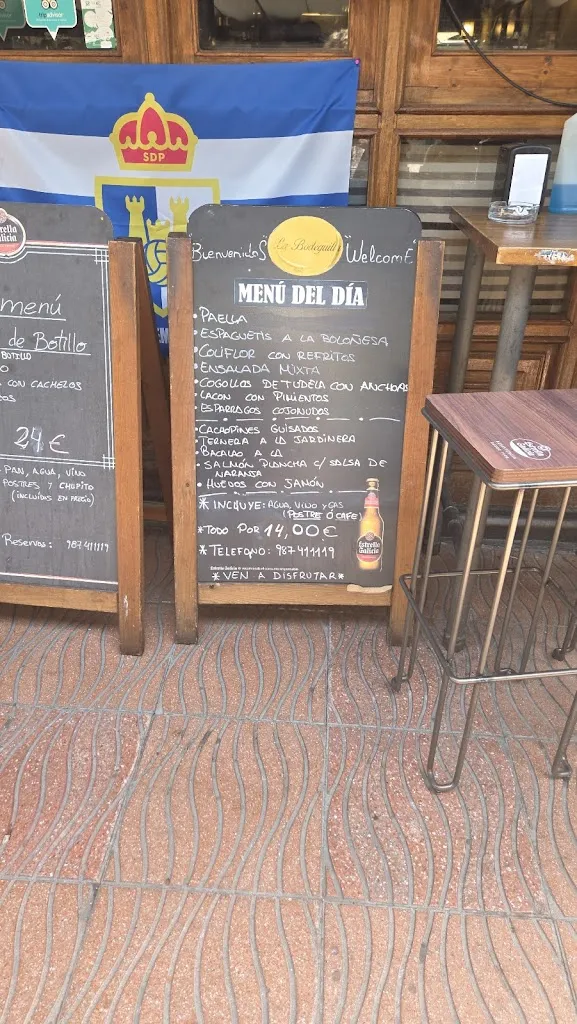 SDP
Estrella
Galicia
menú
de Botillo
BOTILLO
CON CACHELOS
24 €
PAN, AGUA, VINO
POSTRES Y CHUPITO
(INCLUIDOS EN PRECIO)
Reservas: 987411119
Bienvenidos "Welcome"
La Bodeguill
MENÚ DEL DÍA
• PAELLA
• ESPAGUETIS A LA BOLOÑESA
• COLIFLOR CON REFRITOS
• ENSALADA MIXTA
• COGOLLOS DE TUDELA CON ANCHOAS
• LACON CON PIMIENTOS
• ESPARRAGOS COJONUDOS
• CACHOPINES GUISADOS
• TERNERA A LA JARDINERA
• BACALAO A LA
• SALMÓN PLANCHA C/ SALSA DE
NARANJA
• HUEVOS CON JAMÓN
* INCLUYE: AGUA, VINO Y GAS
(POSTRE O CAFE)
* TODO POR 14,00€
* TELEFONO: 987411119
Estrella
Galicia
* VEN A DISFRUTAR *
Estrella
Galicia